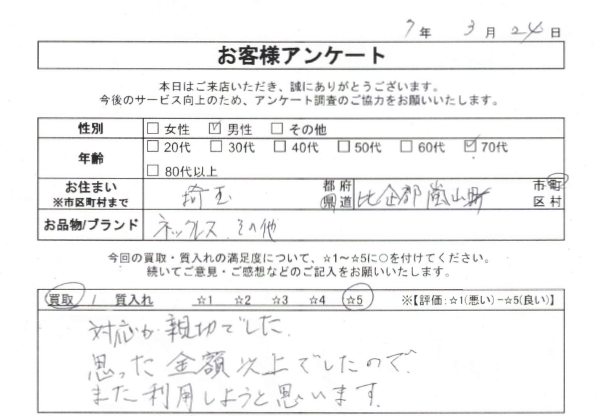 7年 3月 24日
お客様アンケート
本日はご来店いただき、誠にありがとうございます。
今後のサービス向上のため、アンケート調査のご協力をお願いいたします。
性別 □ 女性 ☑ 男性 □ その他
年齢 □ 20代 □ 30代 □ 40代 □ 50代 □ 60代 ☑ 70代
□ 80代以上
お住まい ※市区町村まで 埼玉 都 府 県 道 比企郡嵐山町 市 町 区 村
お品物/ブランド ネックレス、その他
今回の買取・質入れの満足度について、☆1~☆5に○を付けてください。
続いてご意見・ご感想などのご記入をお願いいたします。
買取 / 質入れ ☆1 ☆2 ☆3 ☆4 ☆5 ※【評価:☆1(悪い)-☆5(良い)】
対応が親切でした。
思った金額以上でしたので、
また利用しようと思います。